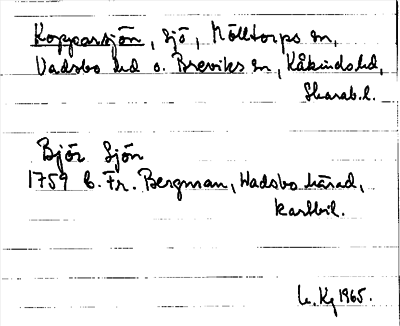 Kopparsjön, sjö, Mölltorps sn,
Vadsbo hd o. Breviks sn, Kåkinds hd,
Skarab.l.
Bjór Sjön
1759 C. Fr. Bergman, Wadsbo härad,
kartbil.
Kg 1965.